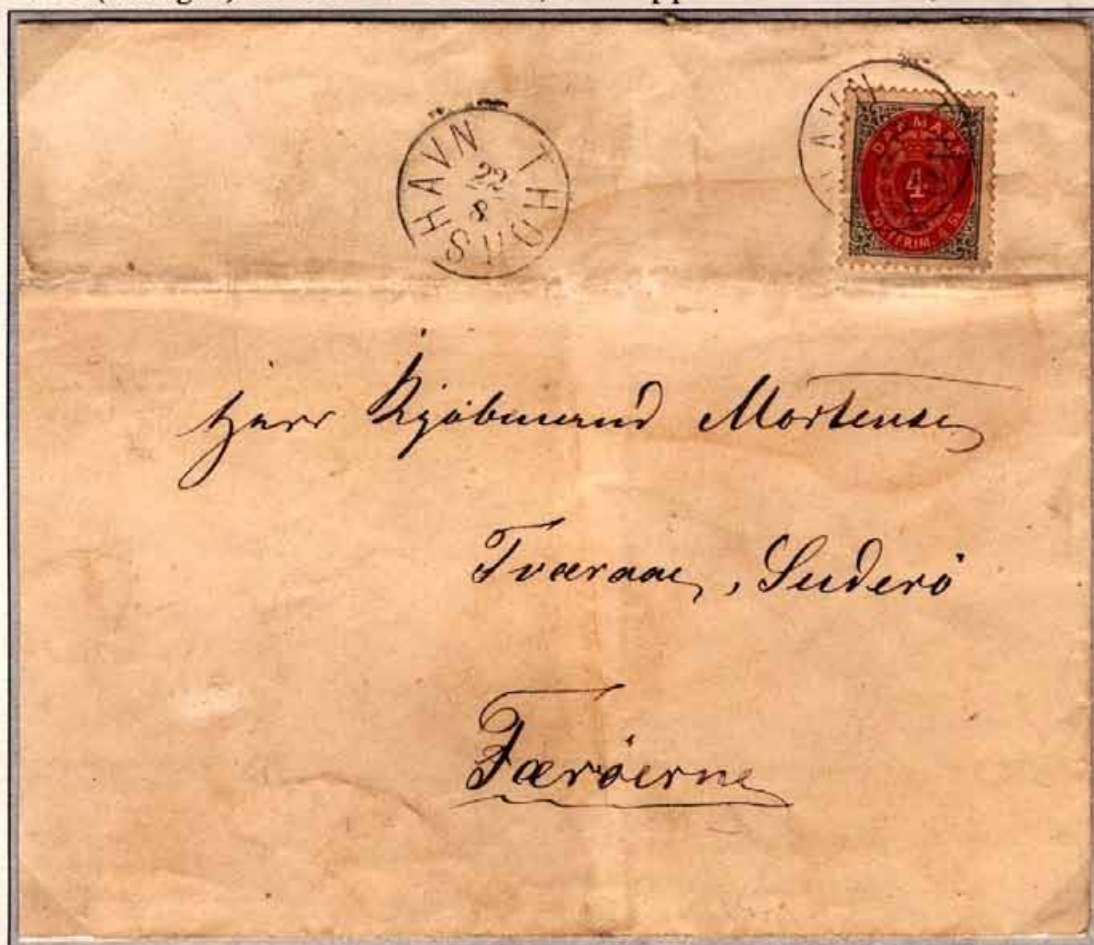 THORSHAVN
22
8
DANMARK
4
POSTFRIM. 4 SK.
Herr Kjöbmand Mortensen
Tværaae, Suderö
Færöerne